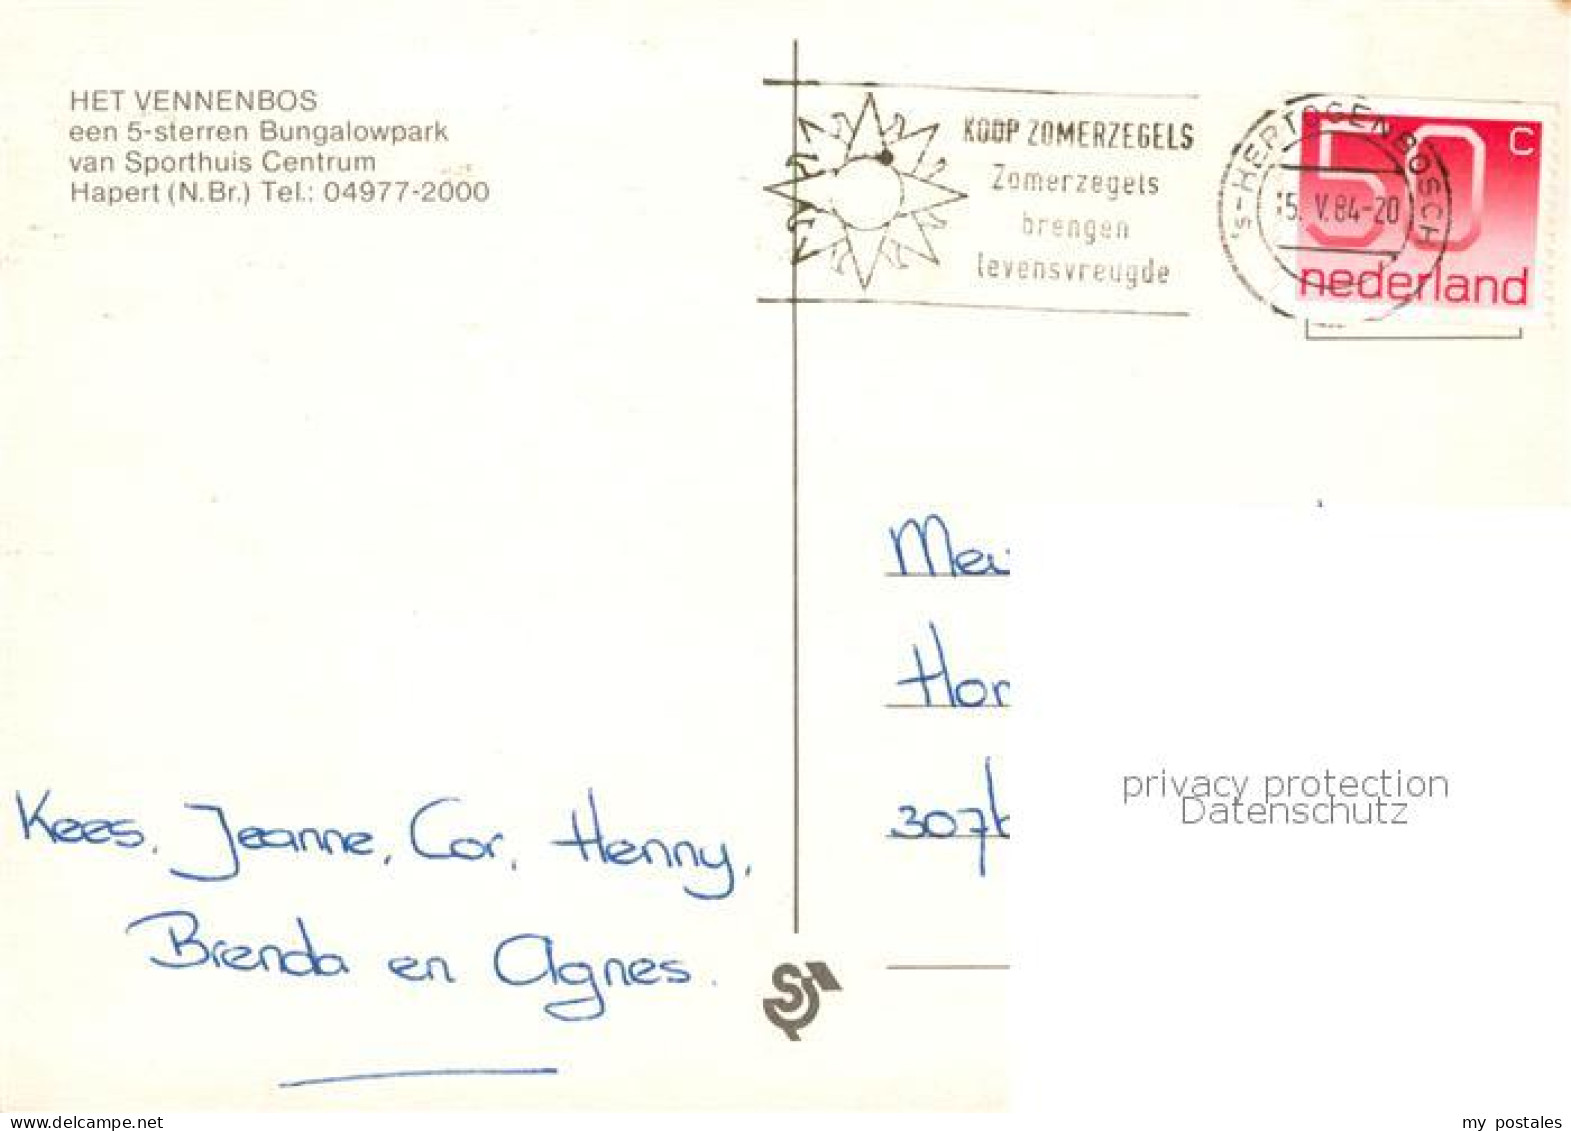 HET VENNENBOS
een 5-sterren Bungalowpark
van Sporthuis Centrum
Hapert (N.Br.) Tel.: 04977-2000
KOOP ZOMERZEGELS
Zomerzegels
brengen
levensvreugde
's-HERTOGENBOSCH
15. V.84-20
50 c
nederland
Mei
Hor
307
privacy protection
Datenschutz
Kees, Jeanne, Cor, Henny,
Brenda en Agnes.
delcampe.net
my postales